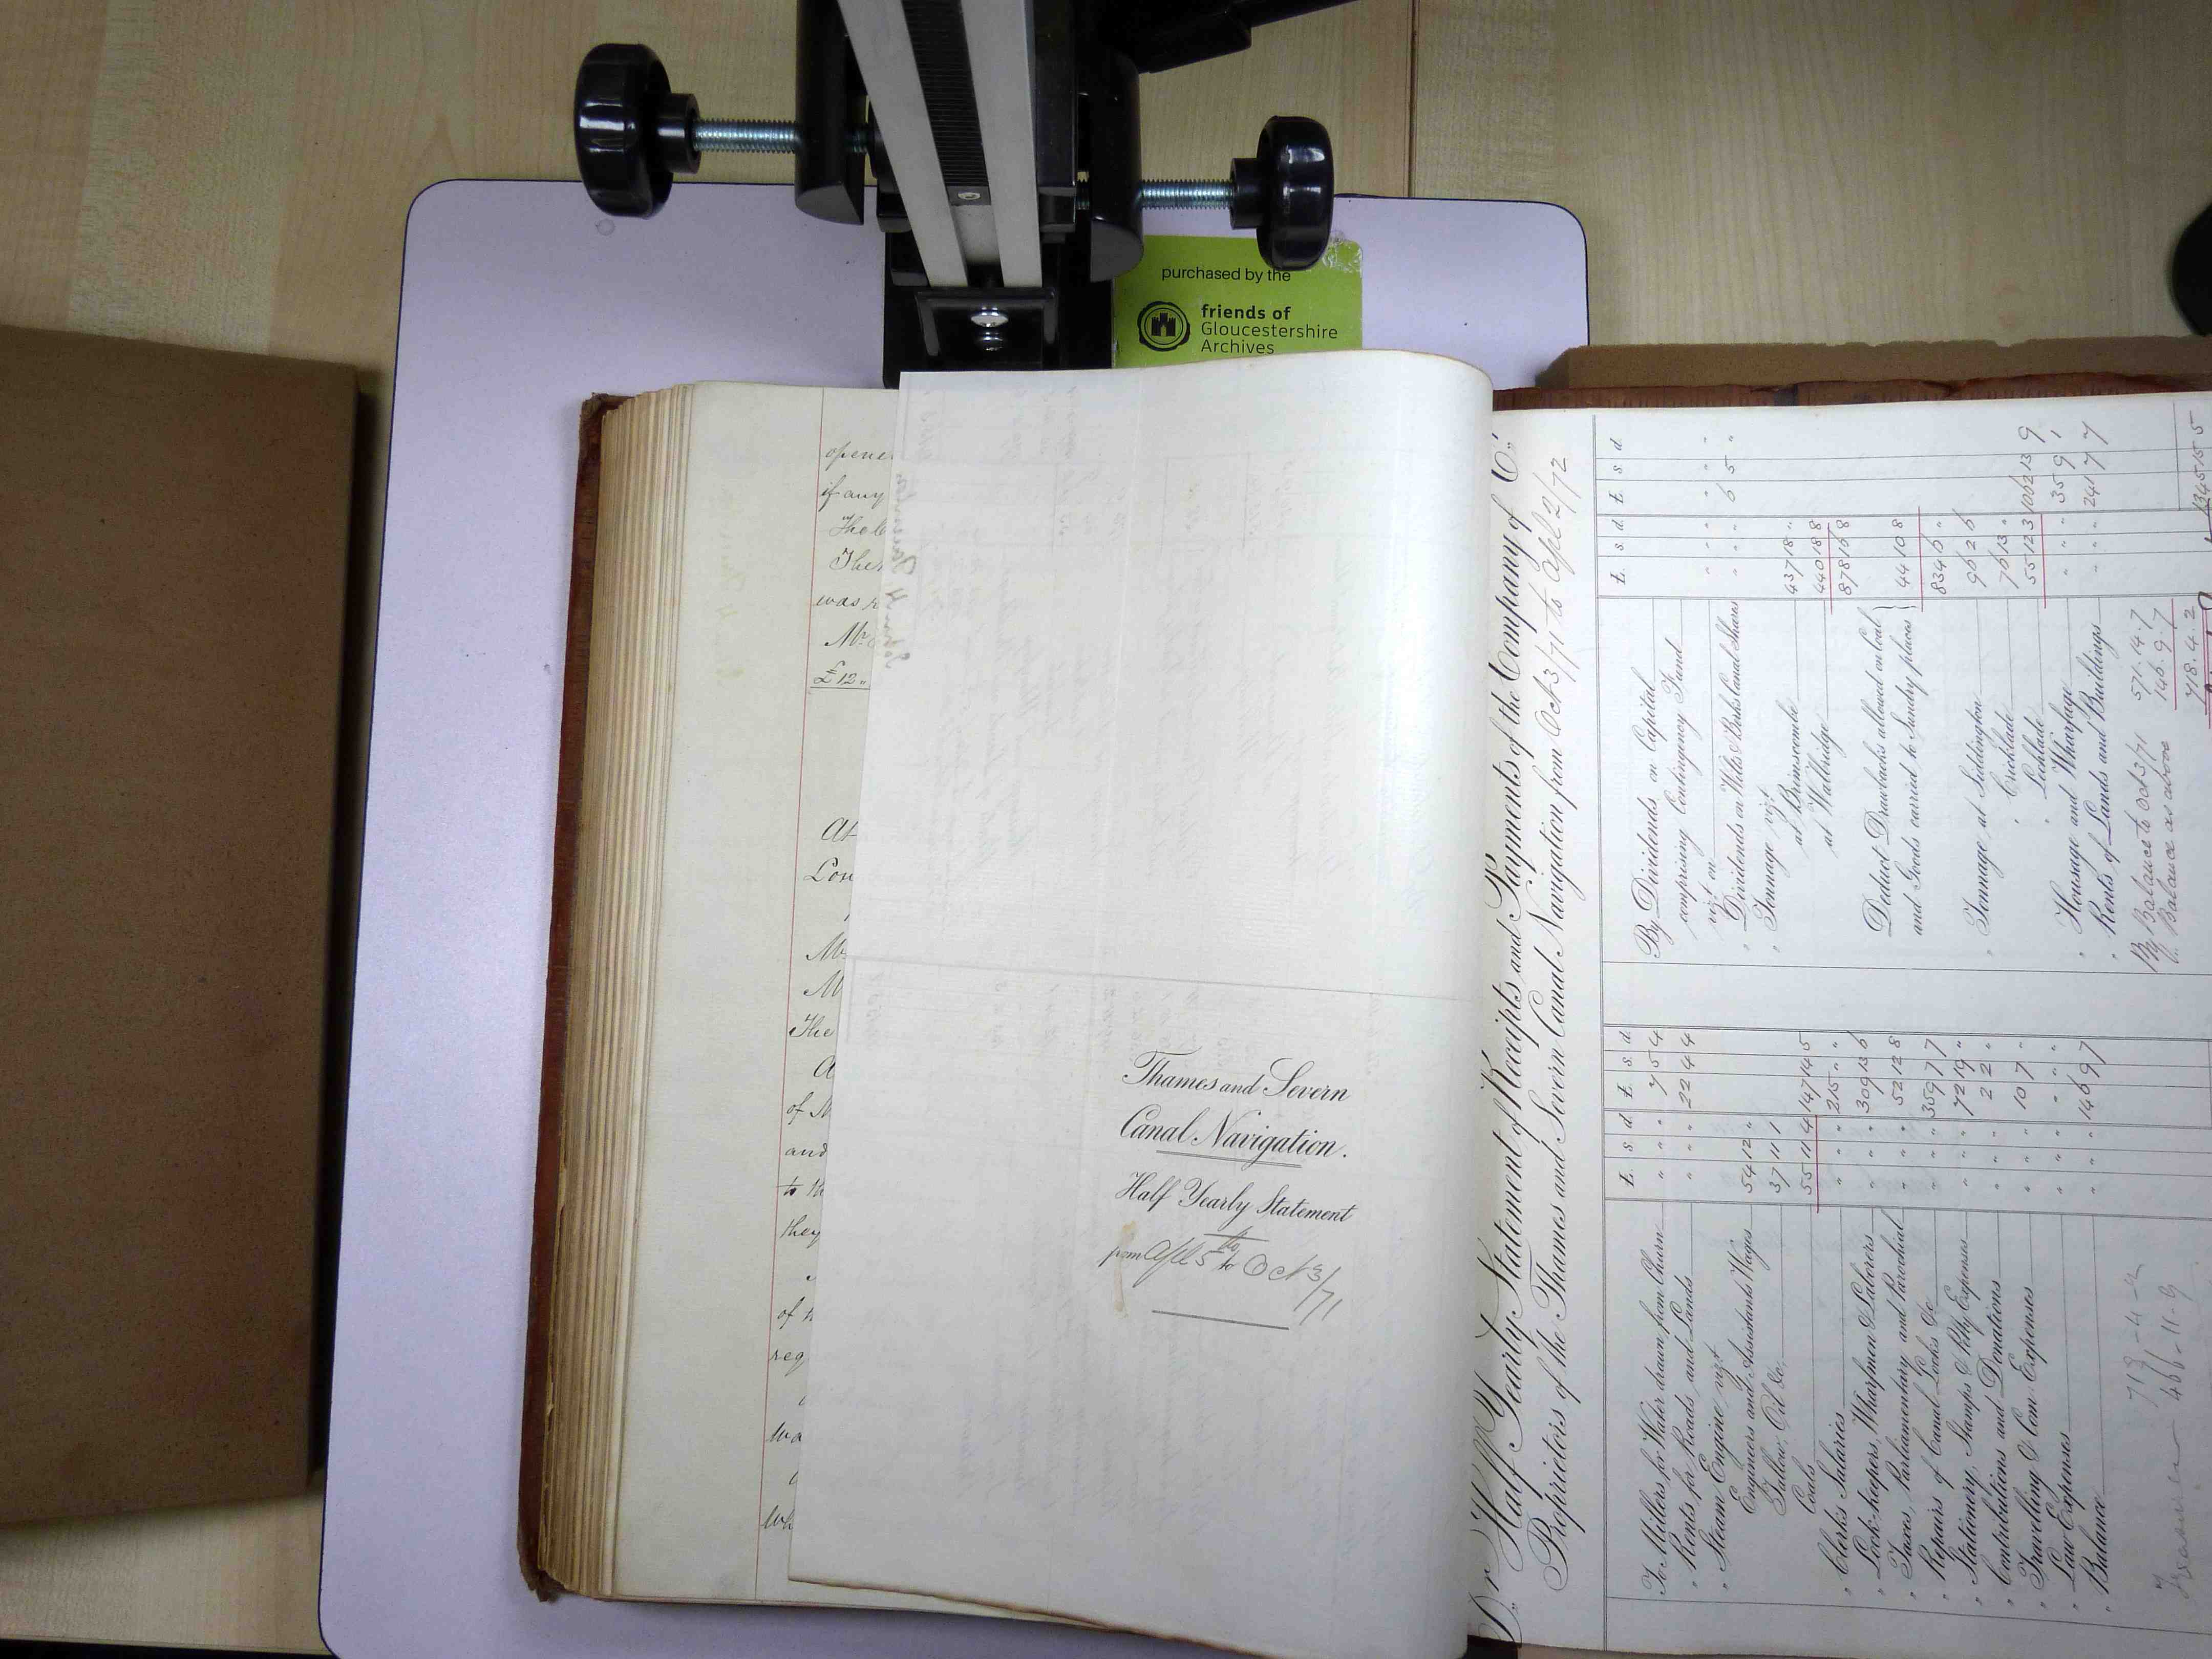 purchased by the
friends of
Gloucestershire
Archives
opene
if any
The
was r
Mr
£12
At
Lon
Mr
M
The
A
of M
and
to th
they
of
req
wa
wh
Thames and Severn
Canal Navigation.
Half Yearly Statement
from Apl 5th to Oct 3/71
Dr Half Yearly Statement of Receipts and Payments of the Company of Cr
Proprietors of the Thames and Severn Canal Navigation from Oct 3/71 to Apl 2/72
£ s d £ s d
To Millers for Water drawn from Churn " " " 7 5 4
" Rents for Roads and Lands " " " 22 4 4
" Steam Engine, vizt
Engineers and Assistants Wages 54 12 "
Tallow, Oil &c. 37 11 1
Coals 55 11 4 147 14 5
" Clerks Salaries " " " 215 " "
" Lock-keepers, Wharfmen & Laborers " " " 309 13 6
" Taxes, Parliamentary and Parochial " " " 52 12 8
" Repairs of Canal, Locks &c " " " 359 7 7
" Stationery, Stamps & Petty Expenses " " " 72 19 "
" Contributions and Donations " " " 2 2 "
" Travelling & Com: Expenses " " " 10 7 "
" Law Expenses " " " " " "
" Balance " " " 146 9 7
718-4-2
466-11-9
£ s d £ s d
By Dividends on Capital
comprising Contingency Fund
vizt on " " " " " "
" Dividends on Wilts & Berks Canal Shares " " " 6 5 "
" Tonnage vizt
at Brimscombe 437 18 "
at Wallbridge 440 18 8
878 16 8
Deduct Drawbacks allowed on Coal
and Goods carried to Sundry places } 44 10 8
834 6 "
" Tonnage at Siddington 96 2 6
" Cricklade 76 13 "
" Lechlade 55 12 3 1062 13 9
" Housage and Wharfage " " " 35 9 1
" Rents of Lands and Buildings " " " 241 7 7
1345 15 5
By Balance to Oct 3/71 571.14.7
" Balance as above 146.9.7
718.4.2